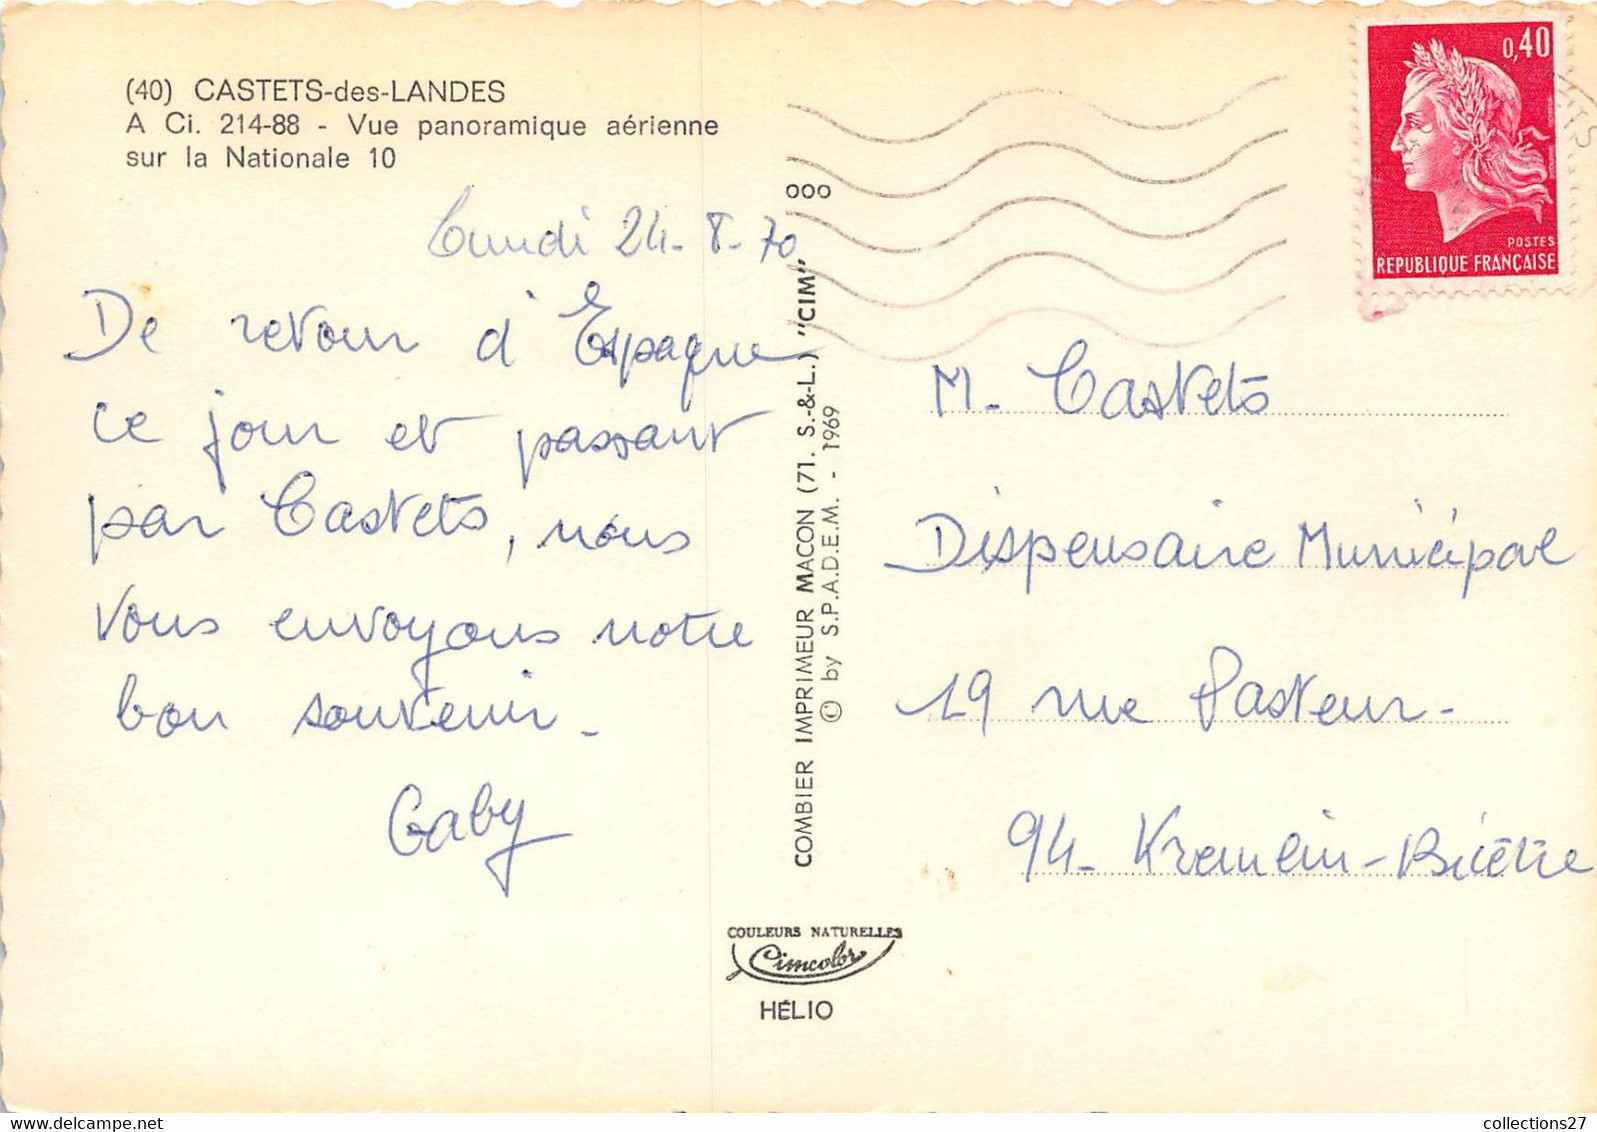 (40) CASTETS-des-LANDES
A Ci. 214-88 - Vue panoramique aérienne
sur la Nationale 10
Lundi 24-8-70
De retour d'Espagne
ce jour et passant
par Castets, nous
vous envoyons notre
bon souvenir.
Gaby
COMBIER IMPRIMEUR MACON (71. S.-&-L.) "CIM"
© by S.P.A.D.E.M. - 1969
COULEURS NATURELLES
Cimcolor
HÉLIO
0,40
POSTES
REPUBLIQUE FRANÇAISE
M. Castets
Dispensaire Municipal
19 rue Pasteur-
94- Kremlin-Bicêtre
collections27